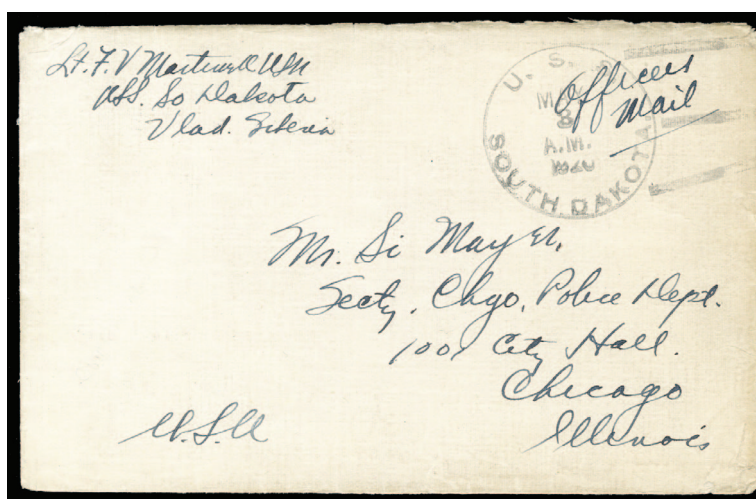 Lt. F. V Martinek USN
USS. So Dakota
Vlad. Siberia
Officers
Mail
U. S. S.
8
A.M.
1920
SOUTH DAKOTA
Mr. Si Mayer,
Secty. Chgo. Police Dept.
1001 City Hall.
Chicago
Illinois
U.S.A